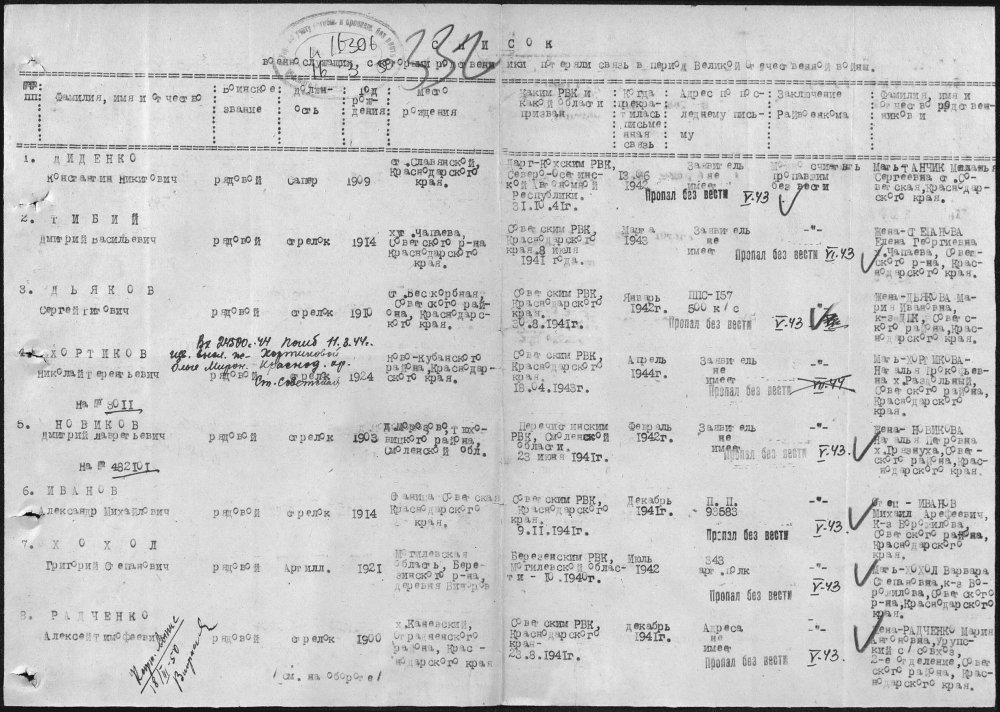 16306
332
С П И С О К
военнослужащих, с которыми родственники потеряли связь в период Великой отечественной войны.
пп. Фамилия, имя и отчество
воинское звание
должность
год рождения
Место рождения
Каким РВК и какой области призван
Когда прекратилась письменная связь
Адрес по последнему письму
Заключение Райвоенкома
Фамилия, имя и отчество, родственников и
1. ДИДЕНКО
Константин Никитович рядовой Сапер 1909
ст.Славянской, Краснодарского края.
Дарг-Кохским РВК, Северо-Осетинской Автономной Республики. 31.10.41г.
1942
Заявитель не имеет
Можно считать пропавшим без вести
Пропал без вести V.43
Мать-ТАНЧИК Меланья Сергеевна ст.Советская,Краснодарского края.
2. ТИБИЙ
Дмитрий Васильевич рядовой стрелок 1914
хут.Чапаева, Советского р-на Краснодарского края.
Советским РВК, Краснодарского края.8 июля 1941 года.
Марта 1943
Заявитель не имеет
-"-
Пропал без вести VI.43
Жена-СТЕПАНОВА Елена Георгиевна х.Чапаева, Советского р-на, Краснодарского края.
3. ДЬЯКОВ
Сергей Титович рядовой стрелок 1910
ст.Бескорбная, Советского района, Краснодарского края.
Советским РВК, Краснодарского края. 30.8.1941г.
Январь 1942г.
ППС-157 500 к/с
Пропал без вести V.43
Жена-ДЬЯКОВА Мария Ивановна, Советского района, Краснодарского края.
Вх 24580с-44 Погиб 11.3.44г.
изв. высл. же- Хортиковой
Ольге Мирон. Краснод. кр.
Ст. Советская
4. ХОРТИКОВ
Николай Терентьевич рядовой стрелок 1924
Ново-Кубанского района,Краснодарского края.
Советским РВК, Краснодарского края. 18.04.1943г.
Апрель 1944г.
Заявитель не имеет
-"-
Пропал без вести VII.44
Мать-ХОРТИКОВА-Наталья Прокофьевна х.Раздольный, Советского района, Краснодарского края.
На № 9011
5. НОВИКОВ
Дмитрий Лаврентьевич рядовой стрелок 1903
района, Смоленской обл.
Перечистинским РВК, Смоленской области. 23 июня 1941г.
Февраль 1942г.
Заявитель не имеет
-"-
Пропал без вести V.43.
Жена- НОВИКОВА Наталья Петровна х.Грязнуха,Советского района,Краснодарского края.
На № 482101
6. ИВАНОВ
Александр Михайлович рядовой стрелок 1914
Станица Советская Краснодарского края.
Советским РВК, Краснодарского края. 9.11.1941г.
Декабрь 1941г.
П. П. 93583
-"-
Пропал без вести V.43.
Отец - ИВАНОВ Михаил Арефеевич, К-з Ворошилова, Советского района, Краснодарского края.
7. ХОХОЛ
Григорий Степанович рядовой Артилл. 1921
Могилевская область, Березинского р-на, деревня
Березенским РВК, Могилевской области - 10.1940г.
Июль 1942
343 арт.полк
-"-
Пропал без вести V.43
Мать-ХОХОЛ Варвара Степановна,к-з Ворошилова,Советского р-на,Краснодарского края.
8. РАДЧЕНКО
Алексей Тимофеевич рядовой стрелок 1900
х.Каневский, Отрадненского района, Краснодарского края
Советским РВК, Краснодарского края 23.8.1941г.
декабрь 1941г.
Адреса не имеет
-"-
Пропал без вести V.43.
Жена-РАДЧЕНКО Мария Антоновна,Урупский с/совхоз, 2-е отделение,Советского района, Краснодарского края.
/см. на обороте/